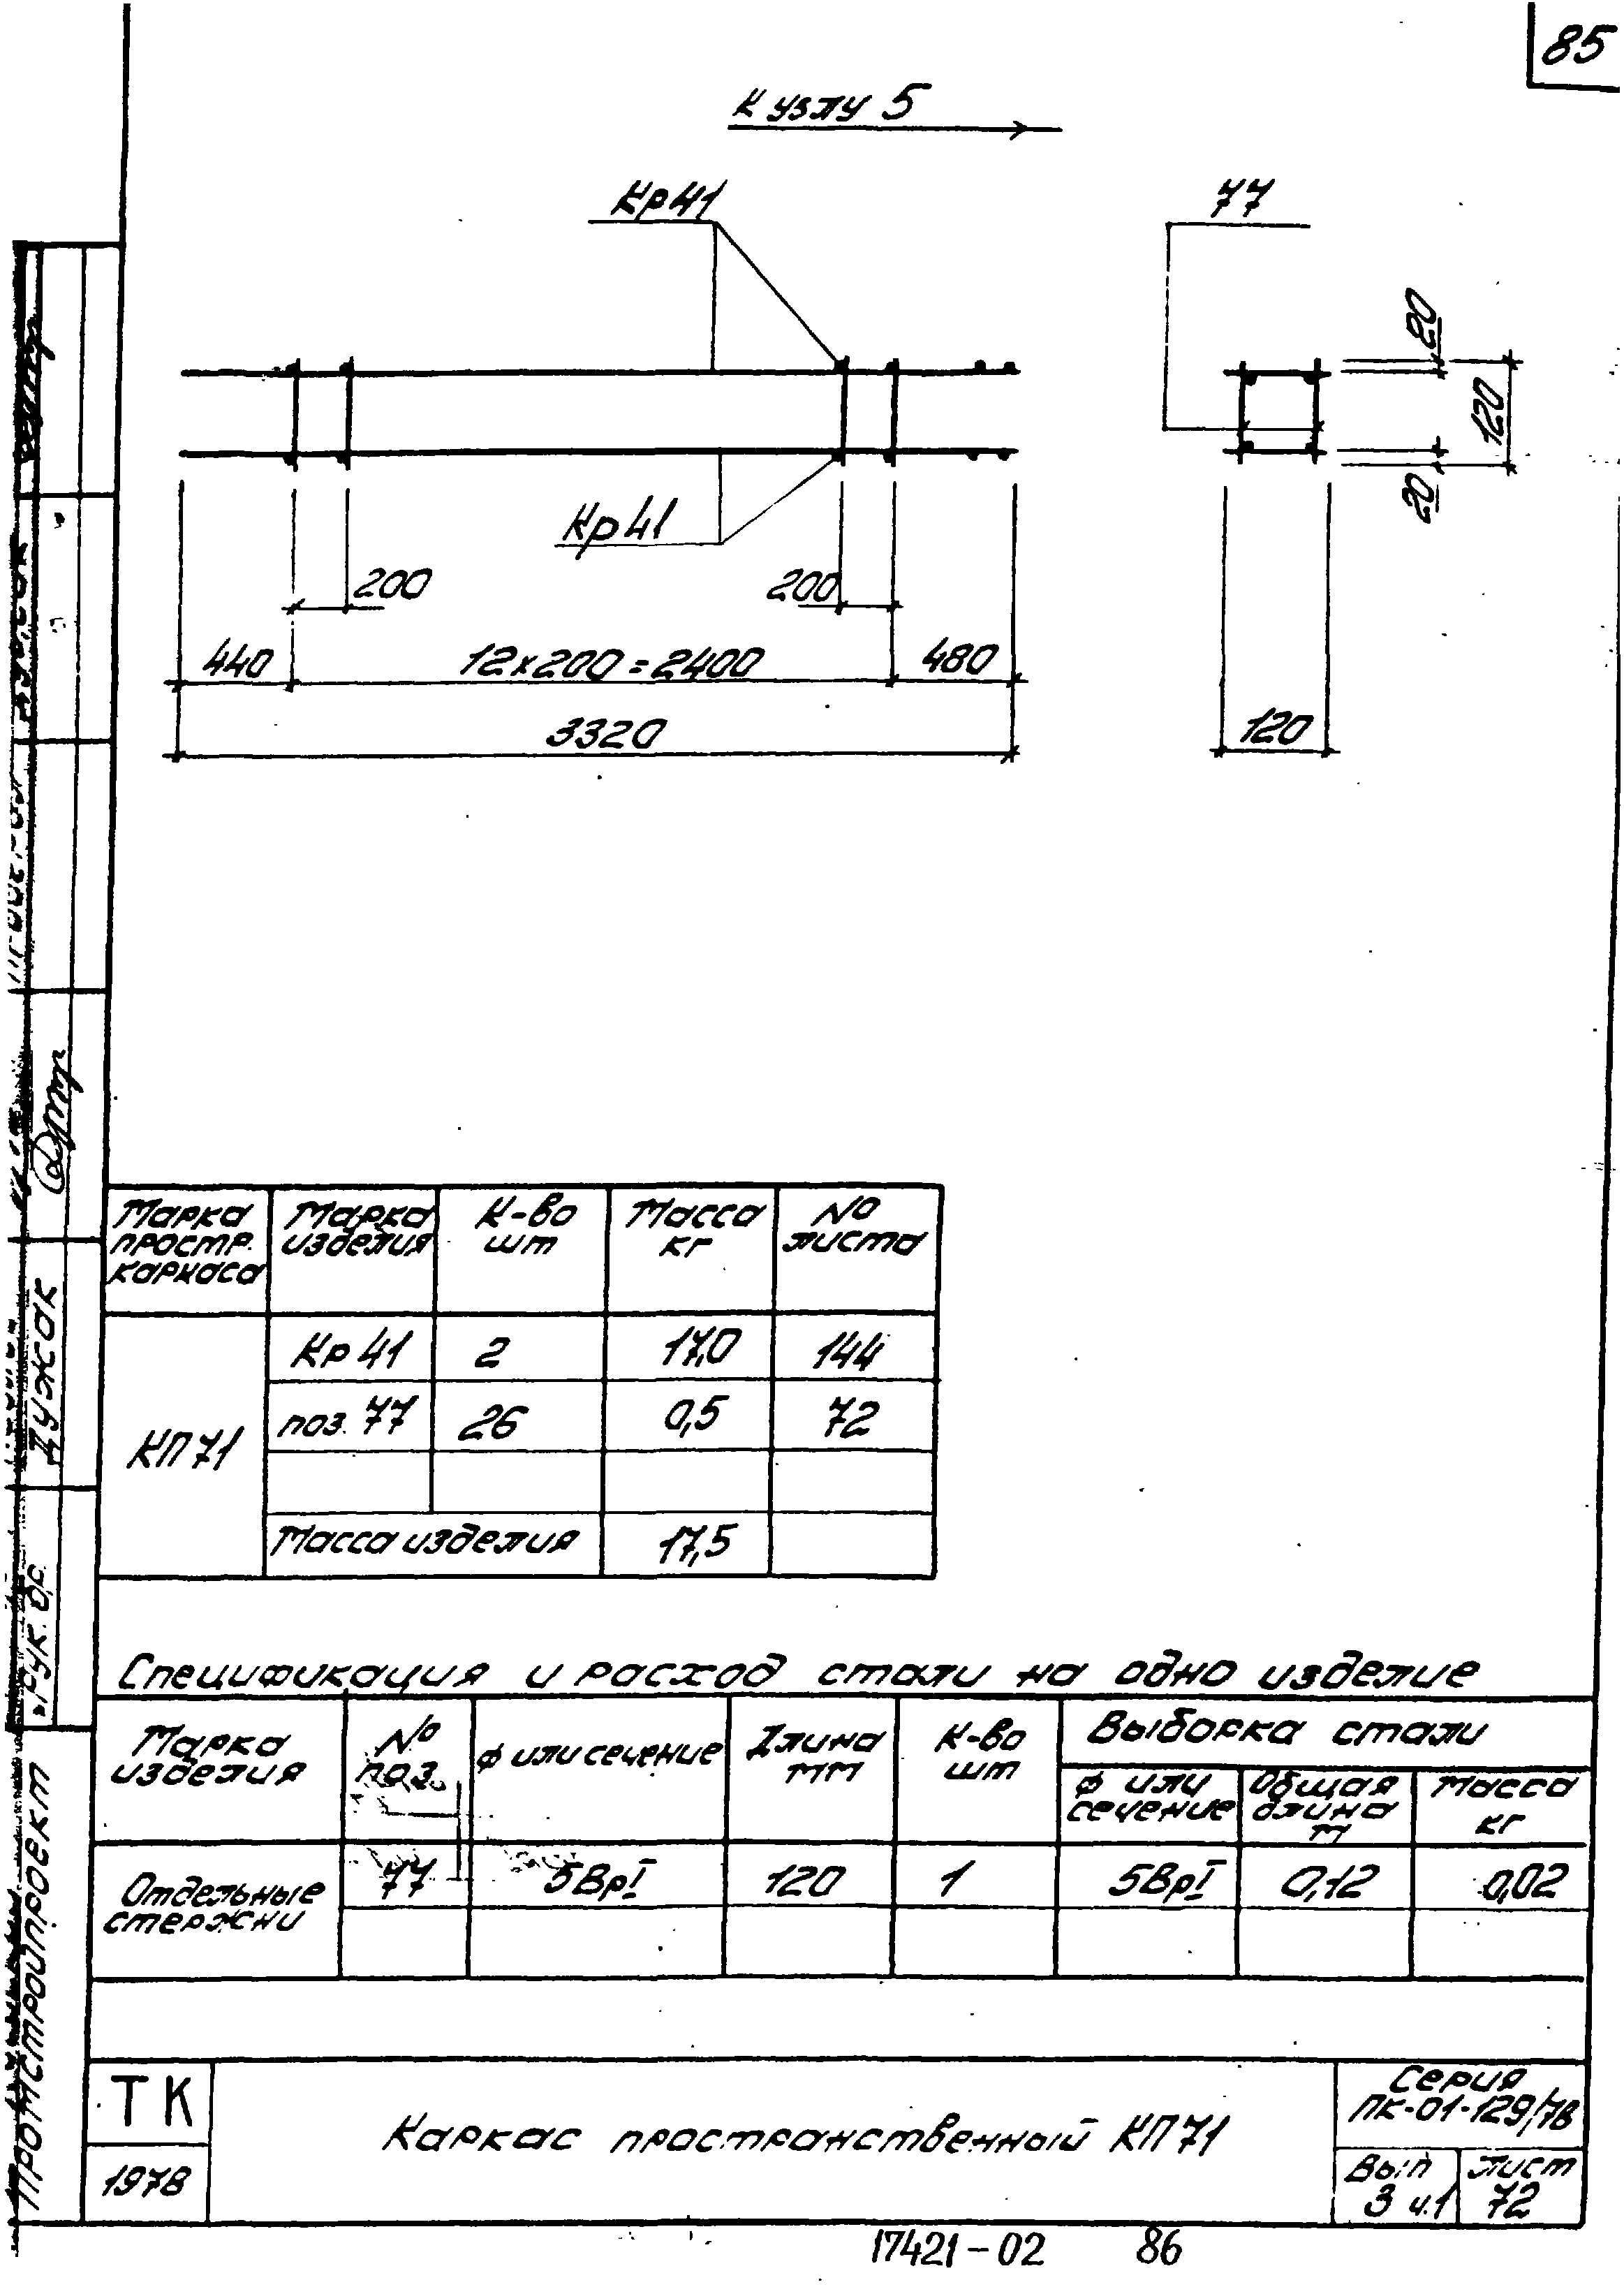 85
К узлу 5
Кр41
77
20
120
Кр41
20
200
200
440
12х200=2400
480
3320
120
Марка простр. каркаса
Марка изделия
К-во шт
Масса кг
№ листа
КП71
Кр41
2
17,0
144
поз. 77
26
0,5
72
Масса изделия
17,5
Спецификация и расход стали на одно изделие
Марка изделия
№ поз.
Ф или сечение
Длина мм
К-во шт
Выборка стали
Ф или сечение
Общая длина м
Масса кг
Отдельные стержни
77
5ВрI
120
1
5ВрI
0,12
0,02
ТК
1978
Каркас пространственный КП71
Серия
ПК-01-129/78
Вып
3 ч.1
Лист
72
17421-02
86
Промстройпроект
Рук. бр.
Дужак